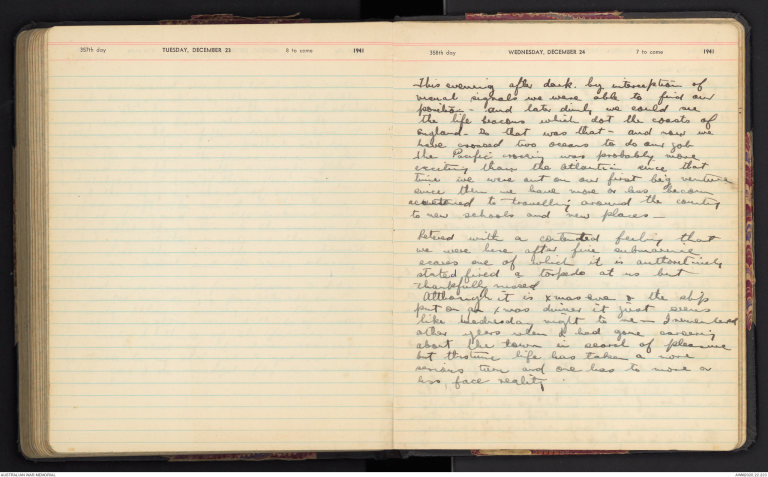 357th day TUESDAY, DECEMBER 23 8 to come 1941
358th day WEDNESDAY, DECEMBER 24 7 to come 1941
This evening after dark, by interception of
visual signals we were able to find our
position - and later dimly we could see
the life beacons which dot the coasts of
England - So that was that - and now we
have crossed two oceans to do our job
the Pacific crossing was probably more
exciting than the Atlantic since that
time we were out on our first big venture
since then we have more or less become
accustomed to travelling around the country
to new schools and new places -
Retired with a contented feeling that
we were here after five submarine
scares one of which it is authoritively
stated fired a torpedo at us but
thankfully missed
Although it is xmas eve & the ship
put on an xmas dinner it just seems
like Wednesday night to me - I remembered
other years when I had gone careering
about the town in search of pleasure
but this time life has taken a more
serious turn and one has to more or
less, face reality.
AUSTRALIAN WAR MEMORIAL